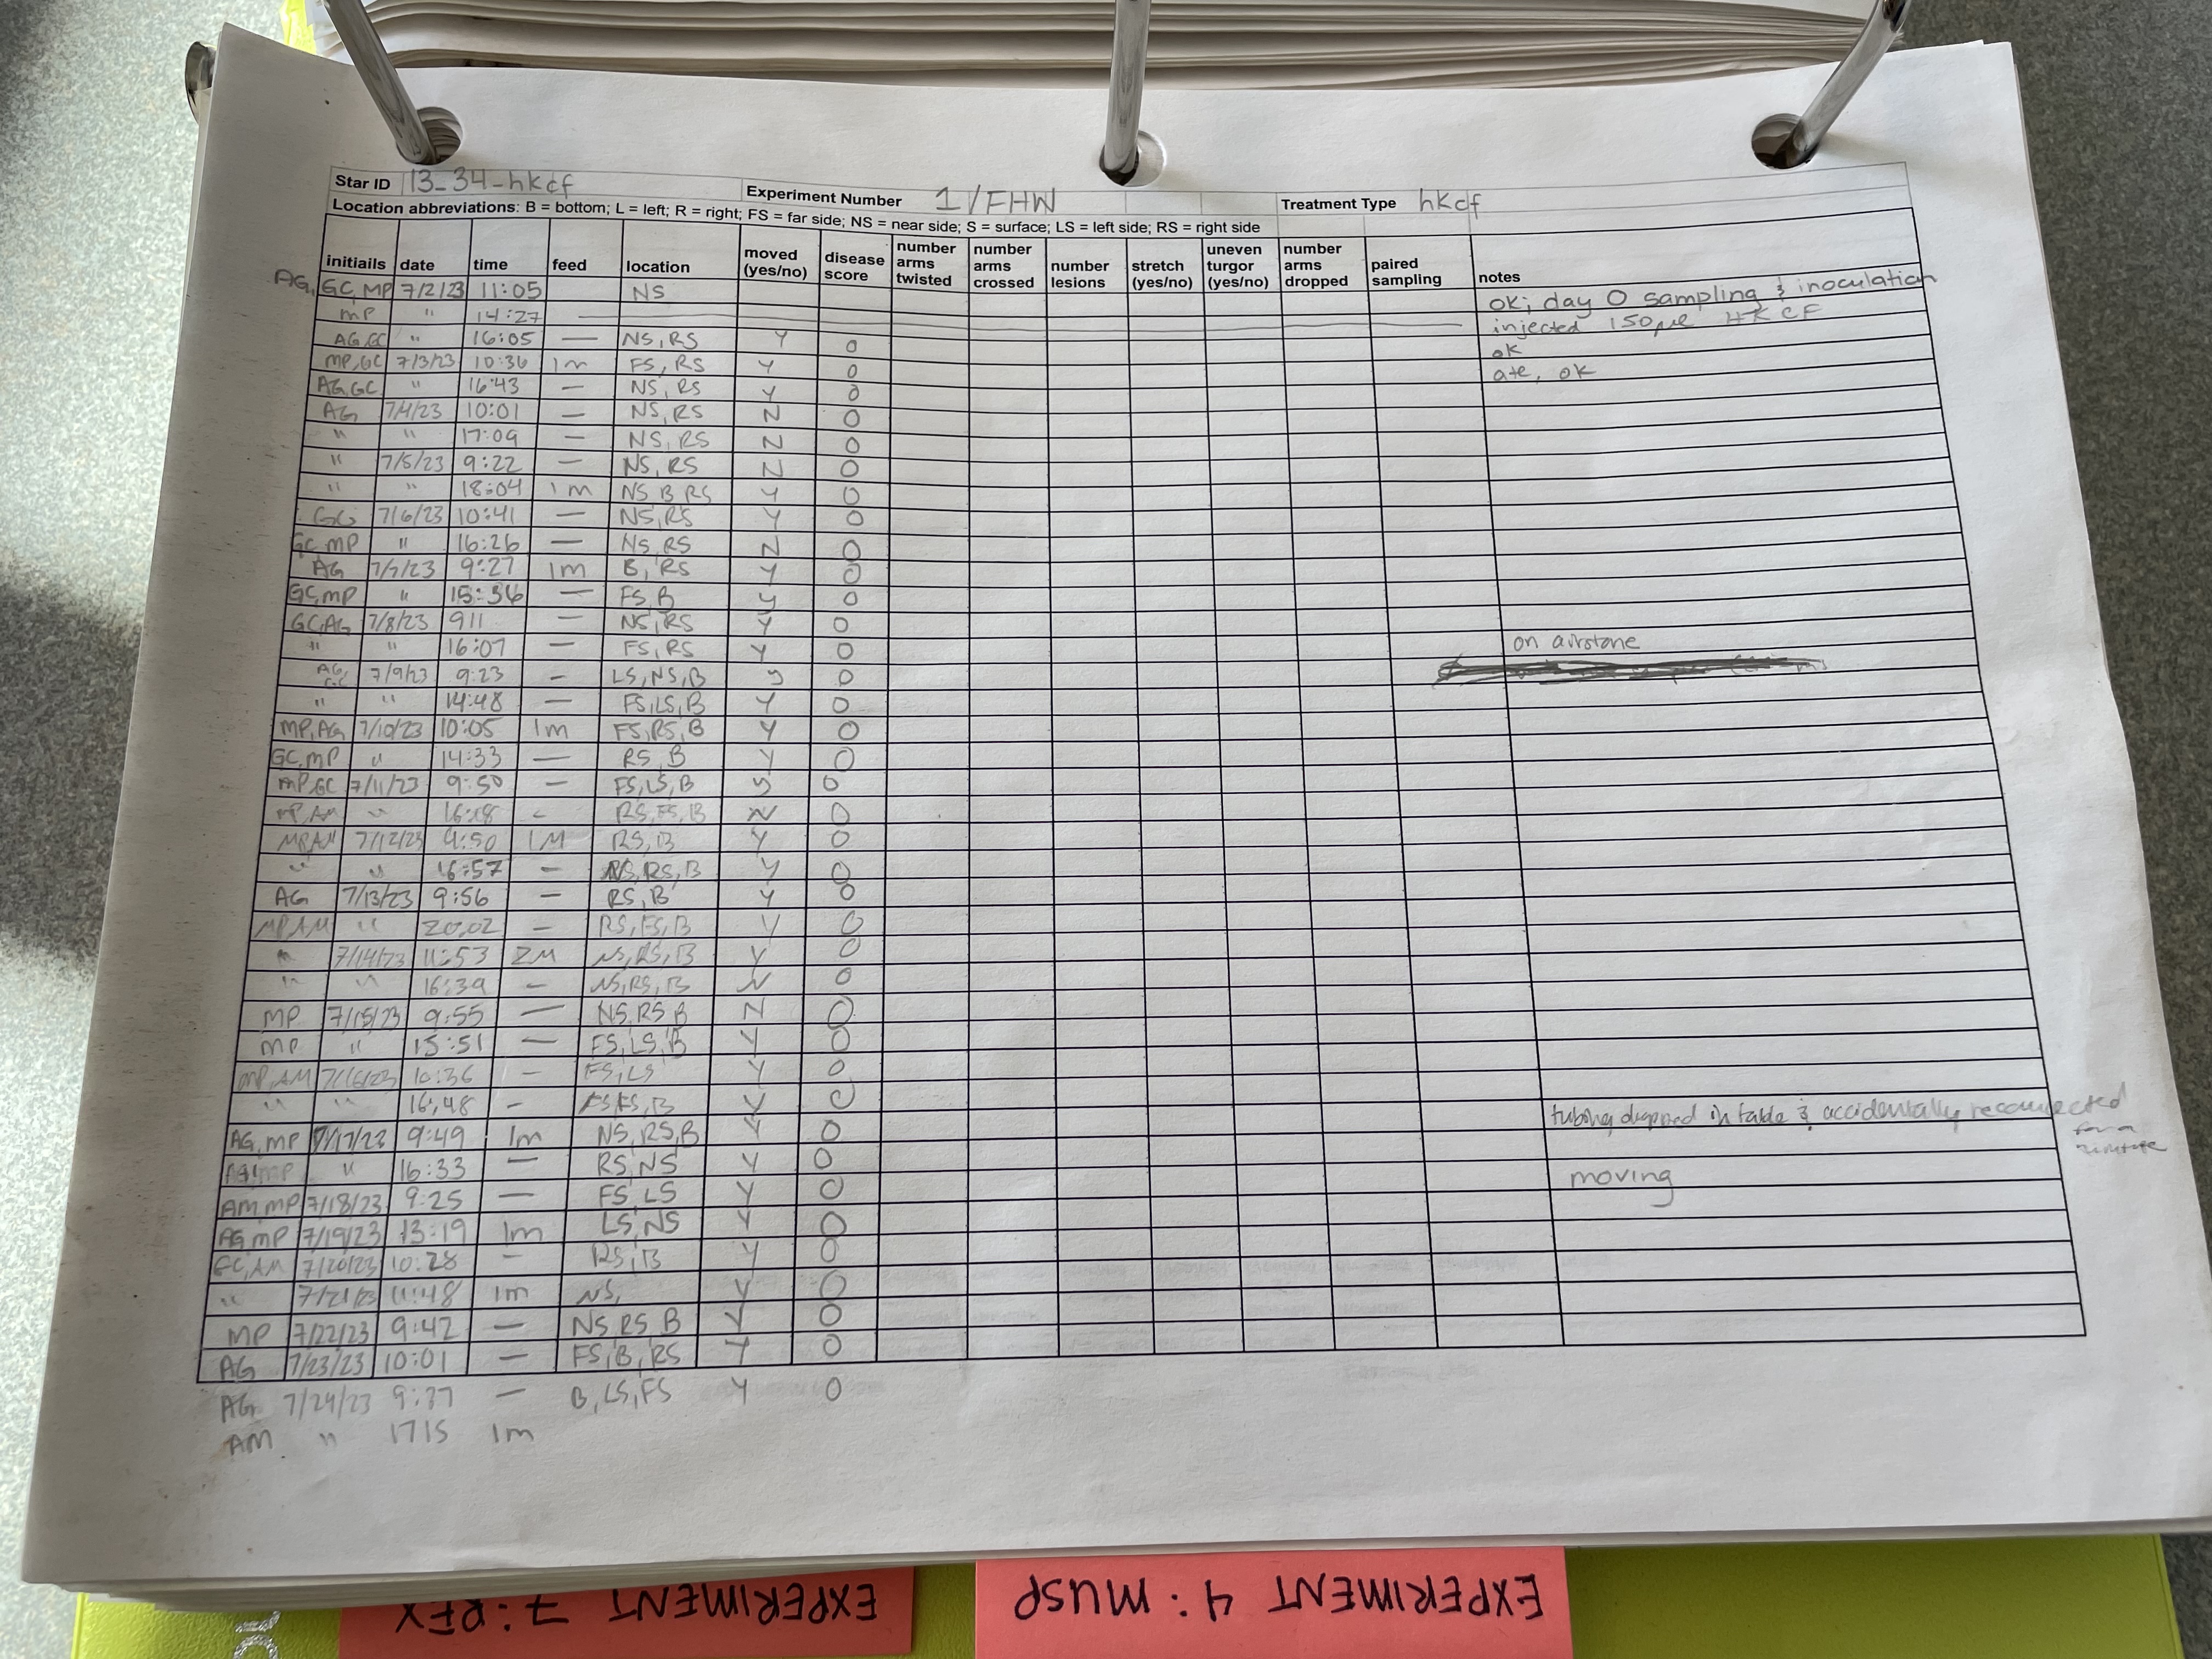 Star ID 13_34-hkcf Experiment Number 1/FHW Treatment Type hkcf
Location abbreviations: B = bottom; L = left; R = right; FS = far side; NS = near side; S = surface; LS = left side; RS = right side
initiails date time feed location moved (yes/no) disease score number arms twisted number arms crossed number lesions stretch (yes/no) uneven turgor (yes/no) number arms dropped paired sampling notes
AG, GC, MP 7/2/23 11:05 NS ok; day 0 sampling & inoculation
MP " 14:27 — injected 150µl HKCF
AG, GC " 16:05 — NS, RS Y 0 ok
MP, GC 7/3/23 10:36 1m FS, RS Y 0 ate, ok
AG, GC " 16:43 — NS, RS Y 0
AG 7/4/23 10:01 — NS, RS N 0
" " 17:09 — NS, RS N 0
" 7/5/23 9:22 — NS, RS N 0
" " 18:04 1m NS B RS Y 0
GC 7/6/23 10:41 — NS, RS Y 0
GC, MP " 16:26 — NS, RS N 0
AG 7/7/23 9:27 1m B, RS Y 0
GC, MP " 15:36 — FS, B y 0
GC, AG 7/8/23 911 — NS, RS Y 0
" " 16:07 — FS, RS Y 0 on airstone
AG, GC 7/9/23 9:23 - LS, NS, B y 0
" " 14:48 — FS, LS, B Y 0
MP, AG 7/10/23 10:05 1m FS, RS, B Y 0
GC, MP " 14:33 — RS, B Y 0
MP, GC 7/11/23 9:50 - FS, LS, B y 0
MP, AM " 16:18 - RS, FS, B N 0
MP, AM 7/12/23 9:50 1M RS, B Y 0
" " 16:57 — NS, RS, B Y 0
AG 7/13/23 9:56 — RS, B Y 0
MP, AM " 20:02 — RS, FS, B Y 0
" 7/14/23 11:53 2M NS, RS, B Y 0
" " 16:39 - NS, RS, B N 0
MP 7/15/23 9:55 — NS, RS B N 0
MP " 15:51 — FS, LS, B Y 0
MP, AM 7/16/23 10:36 - FS, LS Y 0
" " 16:48 - FS, B Y 0 tubing dropped in table & accidentally reconnected for a minute
AG, MP 7/17/23 9:49 1m NS, RS, B Y 0
AG, MP " 16:33 — RS, NS Y 0 moving
AM, MP 7/18/23 9:25 — FS, LS Y 0
AG, MP 7/19/23 13:19 1m LS, NS Y 0
GC, AM 7/20/23 10:28 — RS, B Y 0
" 7/21/23 11:48 1m NS, Y 0
MP 7/22/23 9:42 — NS RS B Y 0
AG 7/23/23 10:01 — FS, B, RS Y 0
AG 7/24/23 9:37 — B, LS, FS Y 0
AM " 1715 1m
EXPERIMENT 7: REX
EXPERIMENT 4: MUSP